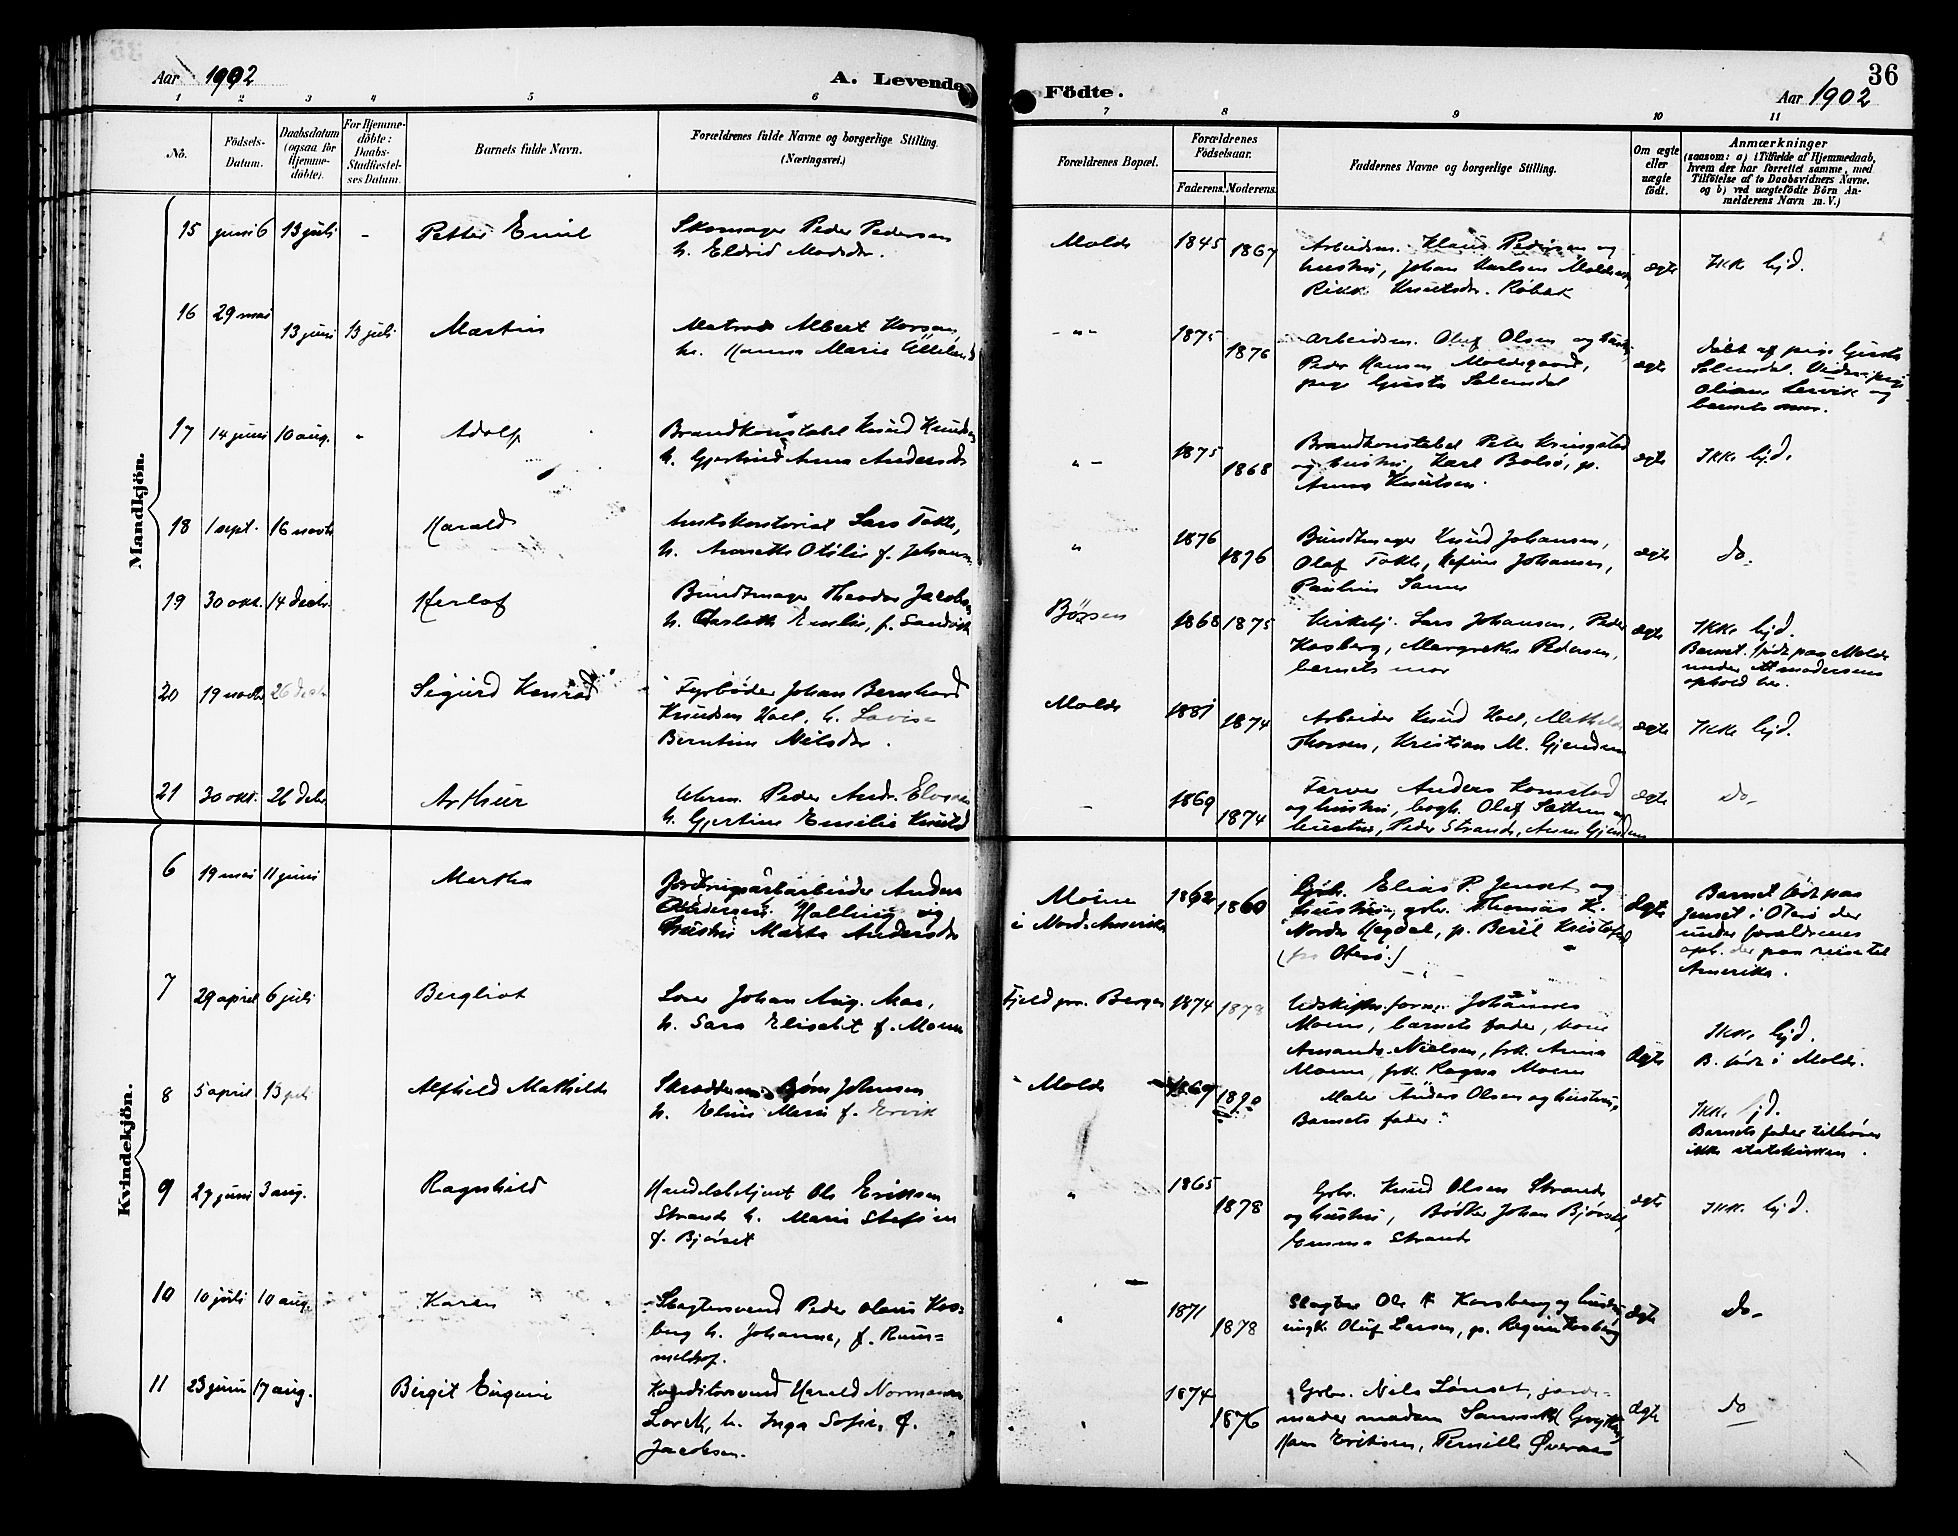 Aar 1902
A. Levende
Födte.
36
Aar 1902
1 2 3 4 5 6 7 8 9 10 11
No.
Födsels-
Datum.
Daabsdatum
(ogsaa for
Hjemme-
döbte).
For Hjemme-
döbte:
Daabs-
Stadfæstel-
ses Datum.
Barnets fulde Navn.
Forældrenes fulde Navne og borgerlige Stilling.
(Næringsvei.)
Forældrenes Bopæl.
Forældrenes
Födselsaar.
Faderens. Moderens.
Faddernes Navne og borgerlige Stilling.
Om ægte
eller
uægte
födt.
Anmærkninger
(saasom: a) i Tilfælde af Hjemmedaab,
hvem der har forrettet samme, med
Tilföielse af to Daabsvidners Navne,
og b) ved uægtefödte Börn An-
melderens Navn m. V.)
Mandkjön.
15 juni 6 13 juli - Petter Emil
Skomager Peder Pedersen
h. Eldrid Madsdr.
Molde 1845 1867
Arbeidsm. Klaus Pedersen og
hustru, Johan Karlsen
Rikke Knutsdr. Røbek
ægte
Ikke hjd.
16 29 mai 13 juni 13 juli Martin
Matros Albert
h. Hanna Marie
-"- 1875 1876
Arbeidsm. Oluf Olsen og hustru,
Peder Hansen Moldegaard,
pige
ægte
døbt af pige
Oliane Lervik og
barnets mor.
17 14 juni 10 aug. " Adolf
Brandkonstabel Knud Knudsen
h. Gjertine Anna Andersdr
"- 1875 1868
Brandkonstabel Peter Kringstad
og hustru, Karl Bolsø, p.
Anna Knutsen.
ægte
Ikke hjd.
18 1 sept. 16 novbr Harald
Amtskontorist Lars Tokle,
h. Anneth Otilie f. Johansen
" 1876 1876
Bundtmager Knud Johansen,
Olaf Tokle, Johansen,
Pauline Sanne
ægte
do.
19 30 okt. 14 decbr. Herlof
Bundtmager Theodor Jacobsen
h. Emilie, f. Sandvik
Børsen 1868 1875
Kirketj. Lars Johansen, Peder
Kosberg, Margrethe Pedersen,
barnets mor
ægte
Ikke hjd.
Barnet født paa Molde
under moderens
ophold her.
20 19 novbr 26 decbr Sigurd Konrad
Fyrbøder Johan Bernhard
Knudsen Hoel, h. Lovise
Berntine Nilsdr.
Molde 1881 1874
Arbeider Knud Hoel, Mathilde
Thorsen, Kristian M. Gjendem
ægte
Ikke hjd.
21 30 okt. 26 decbr Arthur
Uhrm. Peder Andr. Elvsaas
h. Gjertine Emilie
- 1869 1874
Farver Anders Komstad
og hustru, bogh. Olaf Sættem og
hustru, Peder Strande, Anne Gjendem
ægte
do-
Kvindekjön.
6 19 mai 11 juni Martha
Anders
Halling og
hustru Marta Andersdr
i Nord-Amerika
1862 1860
Gbr. Elias P. Jenset og
hustru, gbr. Thomas K.
Nordre Hagdal, p. Beret Kristofersd
(fra Oterø.)
ægte
Barnet født paa
Jenset i Oterø der
under forældrenes
oph. der paa reise til
Amerika.
7 29 april 6 juli Bergliot
Johan Aug. Aas,
h. Sara Elisabet f. Moen
Fjeld pr. Bergen 1874 1878
Udskiftn.form. Johannes
Moen, barnets fader, kone
Amanda Nielsen, frk. Anna
Moen, frk. Ragna Moen
ægte
Ikke hjd.
B. født i Molde.
8 5 april 13 juli Alfhild Mathilde
Skrædderm. Bjørn Johnsen
h. Eline Marie f. Ervik
Molde 1869 1890
Maler Anders Olsen og hustru,
Barnets fader.
Ikke hjd.
Barnets fader tilhører
ikke statskirken.
9 27 juni 3 aug. Ragnhild
Handelsbetjent Ole Eriksen
Strande h. Marie Stefine
f. Bjørset
" 1865 1878
Gbr. Knud Olsen Strande
og hustru, Bødker Johan Bjørset,
Emma Strande
ægte
Ikke hjd.
10 10 juli 10 aug. Karen
Slagtersvend Peder Olaus Kos-
berg h. Johanna, f. Rum-
meldhof.
" 1871 1878
Slagter Ole Korsberg og hustru
ungk. Oluf Larsen, p. Regine Kosberg
ægte
do-
11 23 juni 17 aug. Birgit Eugenie
Konditorsvend Harald Normann
Lorck, h. Inga Sofie, f.
Jacobsen.
" 1874 1876
Gbr. Nils Lønset, jorde-
moder madam
Hans Eriksen, Pernille Øveraas
ægte
do